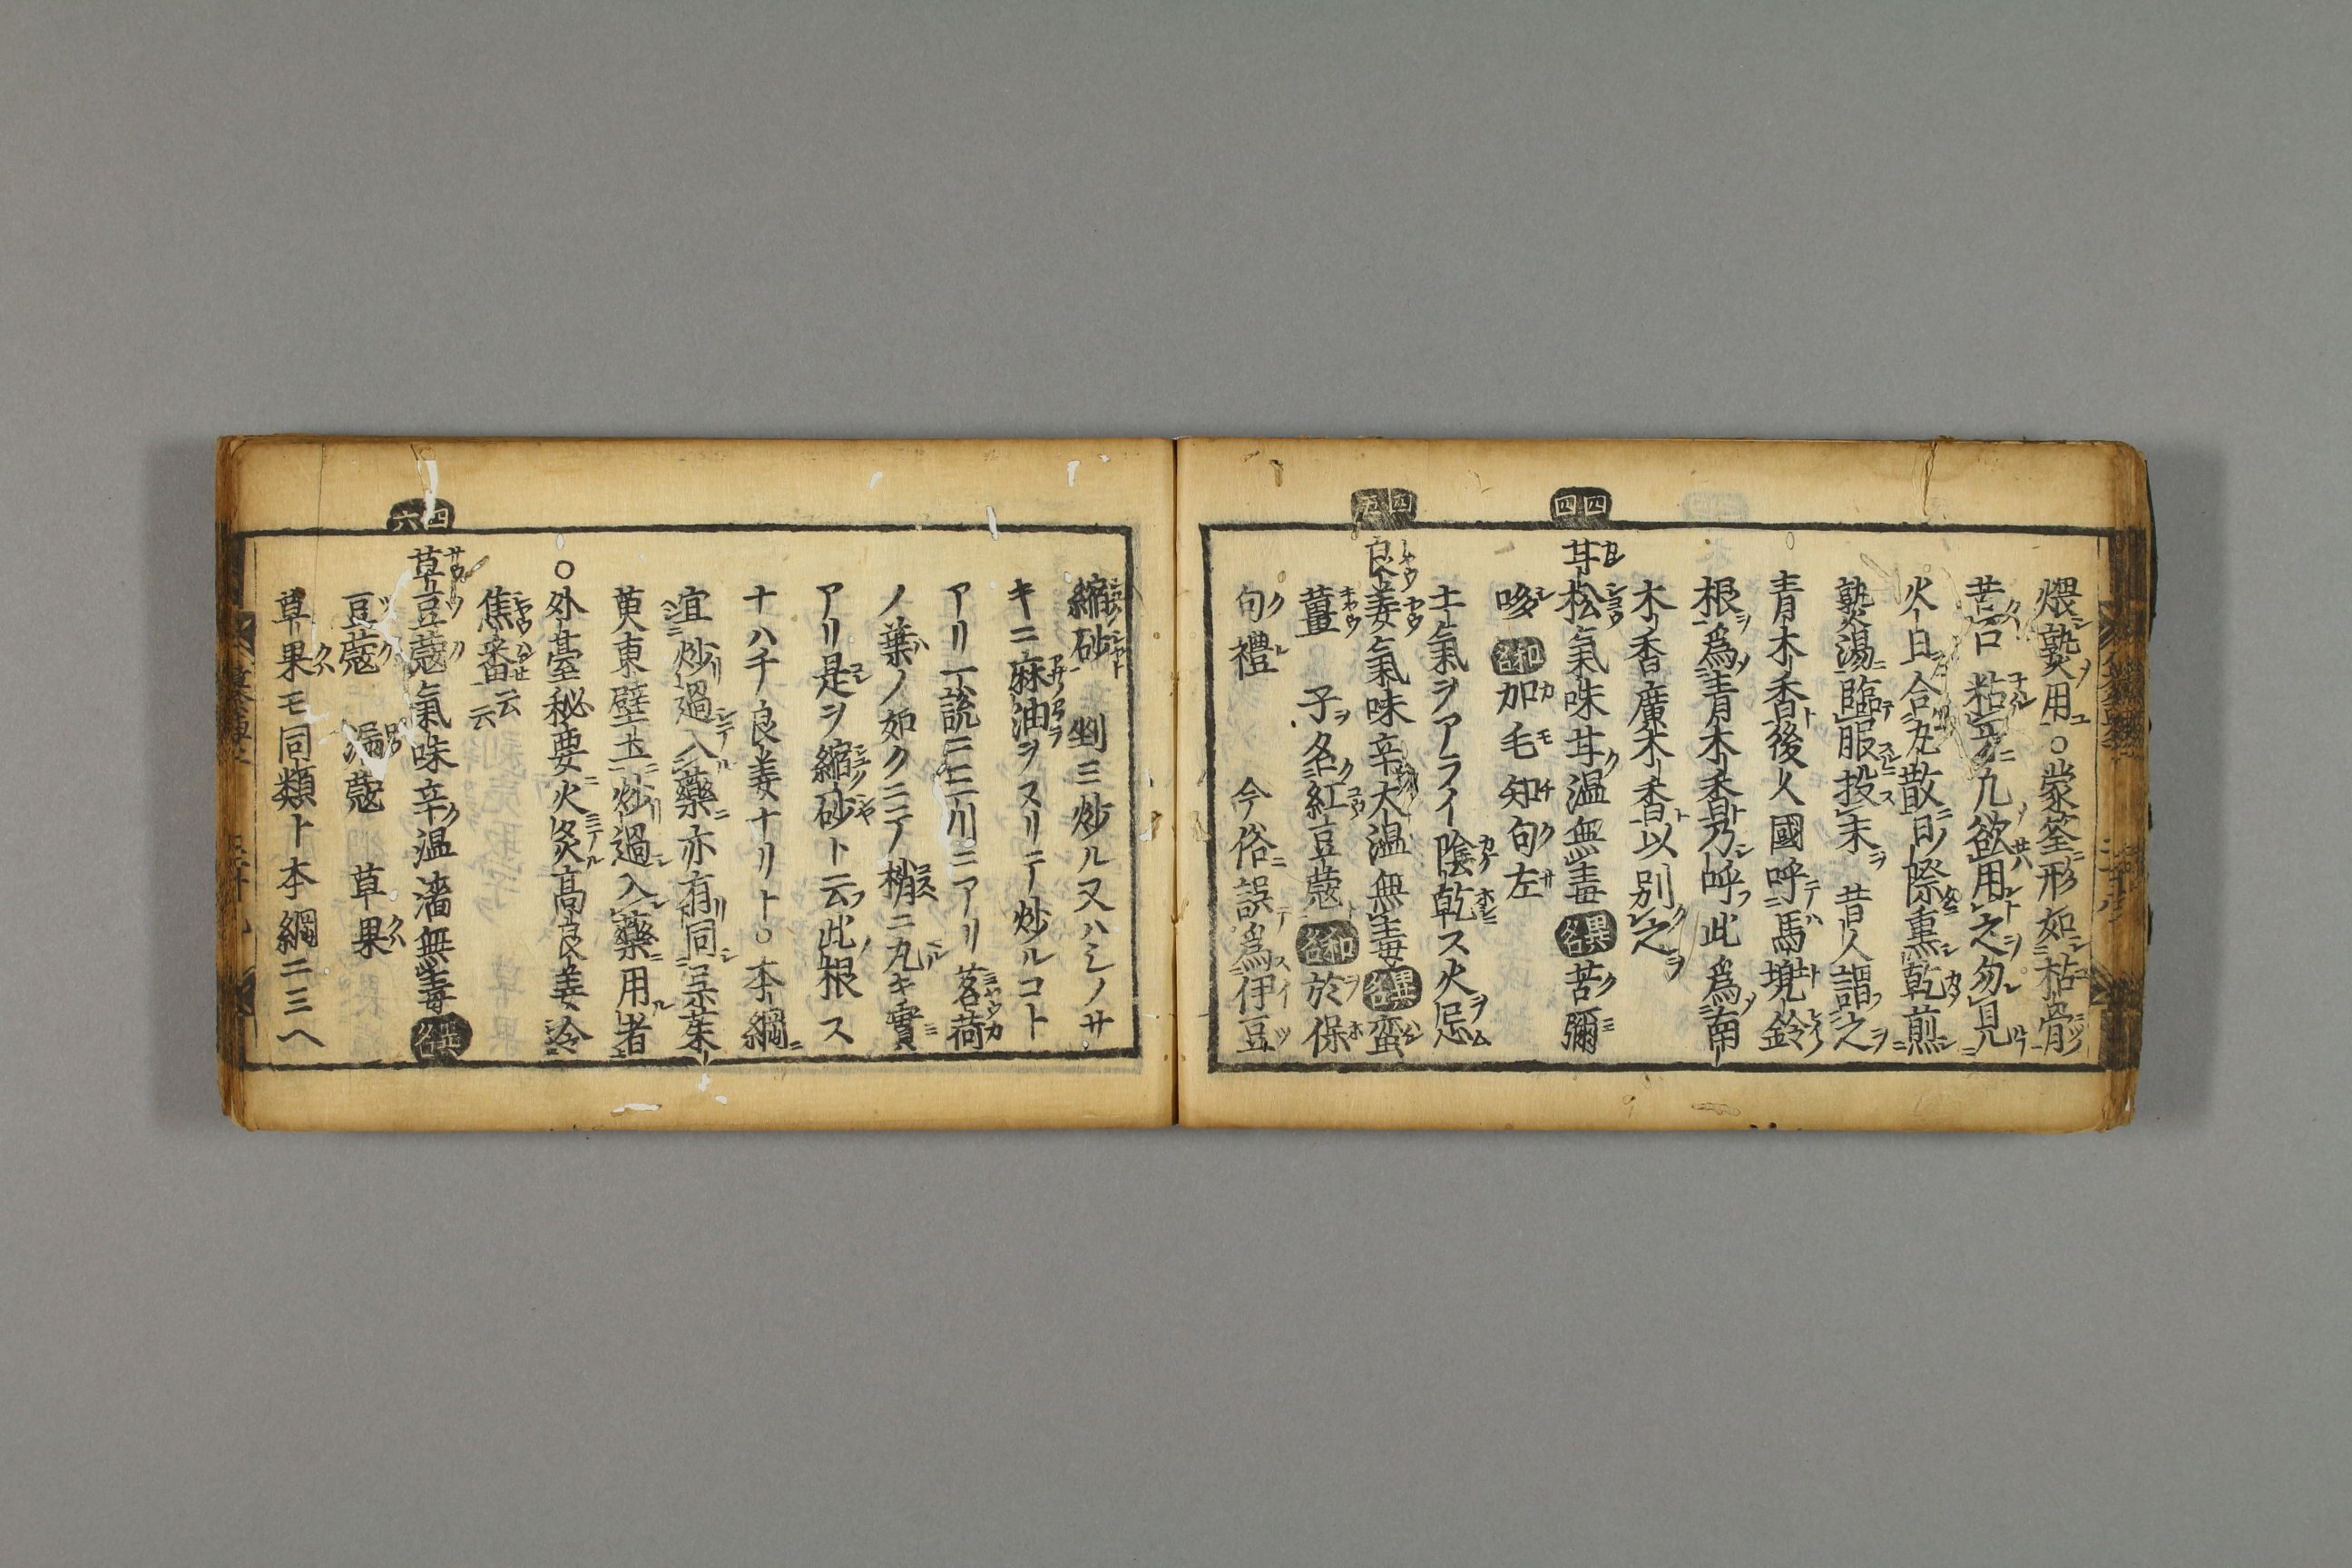 煨熟用。蒙筌形如枯骨
苦口粘牙凡欲用之勿見
火日合丸散日際熏乾煎
熟湯臨服投末昔人謂之
青木香後人國呼馬兜鈴
根為青木香乃呼此為南
木香廣木香以別之
四四
甘松氣味甘温無毒 異名 苦彌
哆 和名 加毛知句左
土氣ヲアライ陰乾ス火忌
四五
良姜氣味辛大温無毒 異名 蛮
薑 子名紅豆蔲 和名 於保
句禮 今俗誤為伊豆
縮砂 剉三炒ル又ハシノサ
キニ麻油ヲスリテ炒ルコト
アリ一説ニ三川ニアリ茗荷
ノ葉ノ如クニテ梢ニ丸キ實
アリ是ヲ縮砂ト云此根ス
ナハチ良姜ナリト○本綱
宜炒過入藥亦有同呉茱
萸東壁土炒過入藥用者
○外臺秘要火炙高良姜冷
焦番云云
四六
草豆蔲氣味辛温濇無毒 異名
豆蔲 漏蔲 草果
草果モ同類ト本綱ニ三ヘ